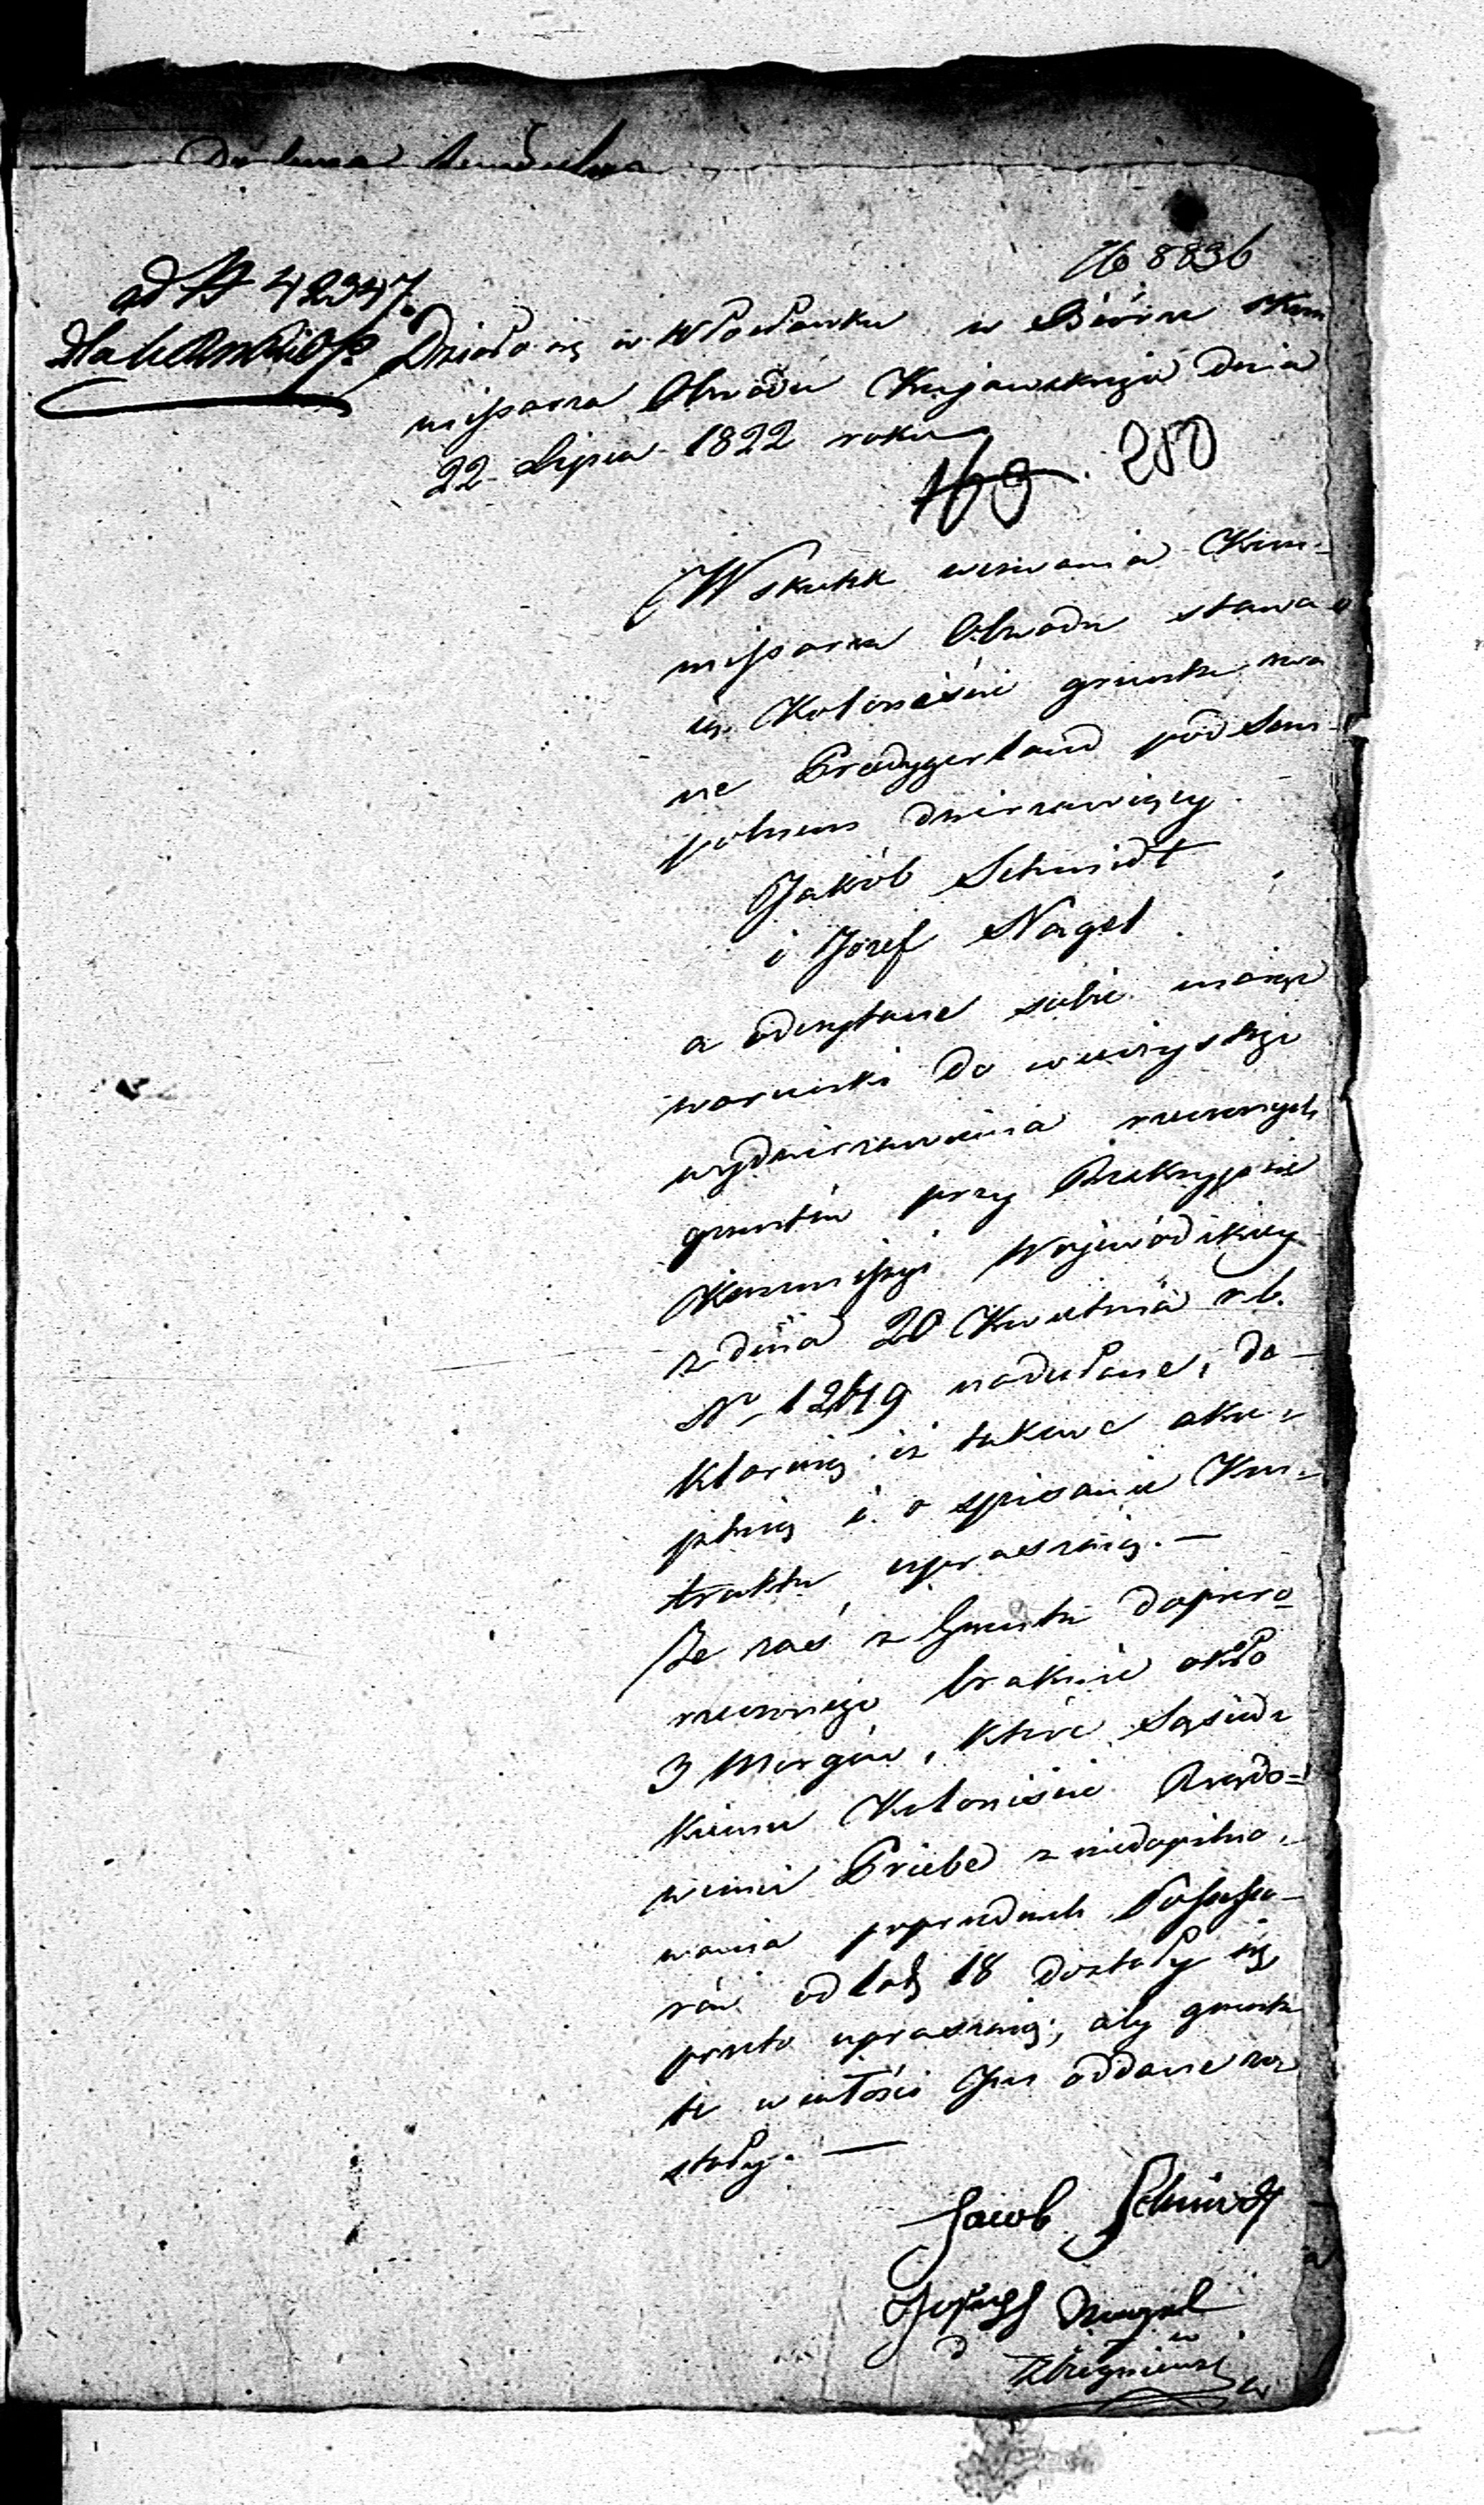 № 8836
ad № 42347.
Działo się w Włocławku w Biórze Kom
missarza Obwodu Kujawskiego dnia
22 Lipca 1822 roku
169. 280
W skutek wezwania Kom-
missarza Obwodu stawa
ią Koloniści grunta zwa
ne Bredygerland pod Som-
polnem dzierzawiący.
Jakób Schmidt
i Józef Nagel
a odczytane sobie maiąc
warunki do wieczystego
wydzierzawienia rzeczonych
gruntów przy Reskrypcie
Kommissyi Wojewódzkiey
z dnia 20 Kwietnia r. b.
Nro 12419 nadesłane, de-
klaruią iż takowe akce-
ptuią i o spisanie Kon-
traktu upraszaią. —
Ze zaś z Gruntu dopiero
rzeczonego brakuie około
3 Morgów, które Sąsiedz
kiemu Koloniście
Priebe z niedopilno-
wania poprzednich Possesso-
rów od lat 18 dostały się,
przeto upraszaią, aby grunta
te w całości Jm oddane zo
stały. —
Jacob Schmidt
Joseph Nagel